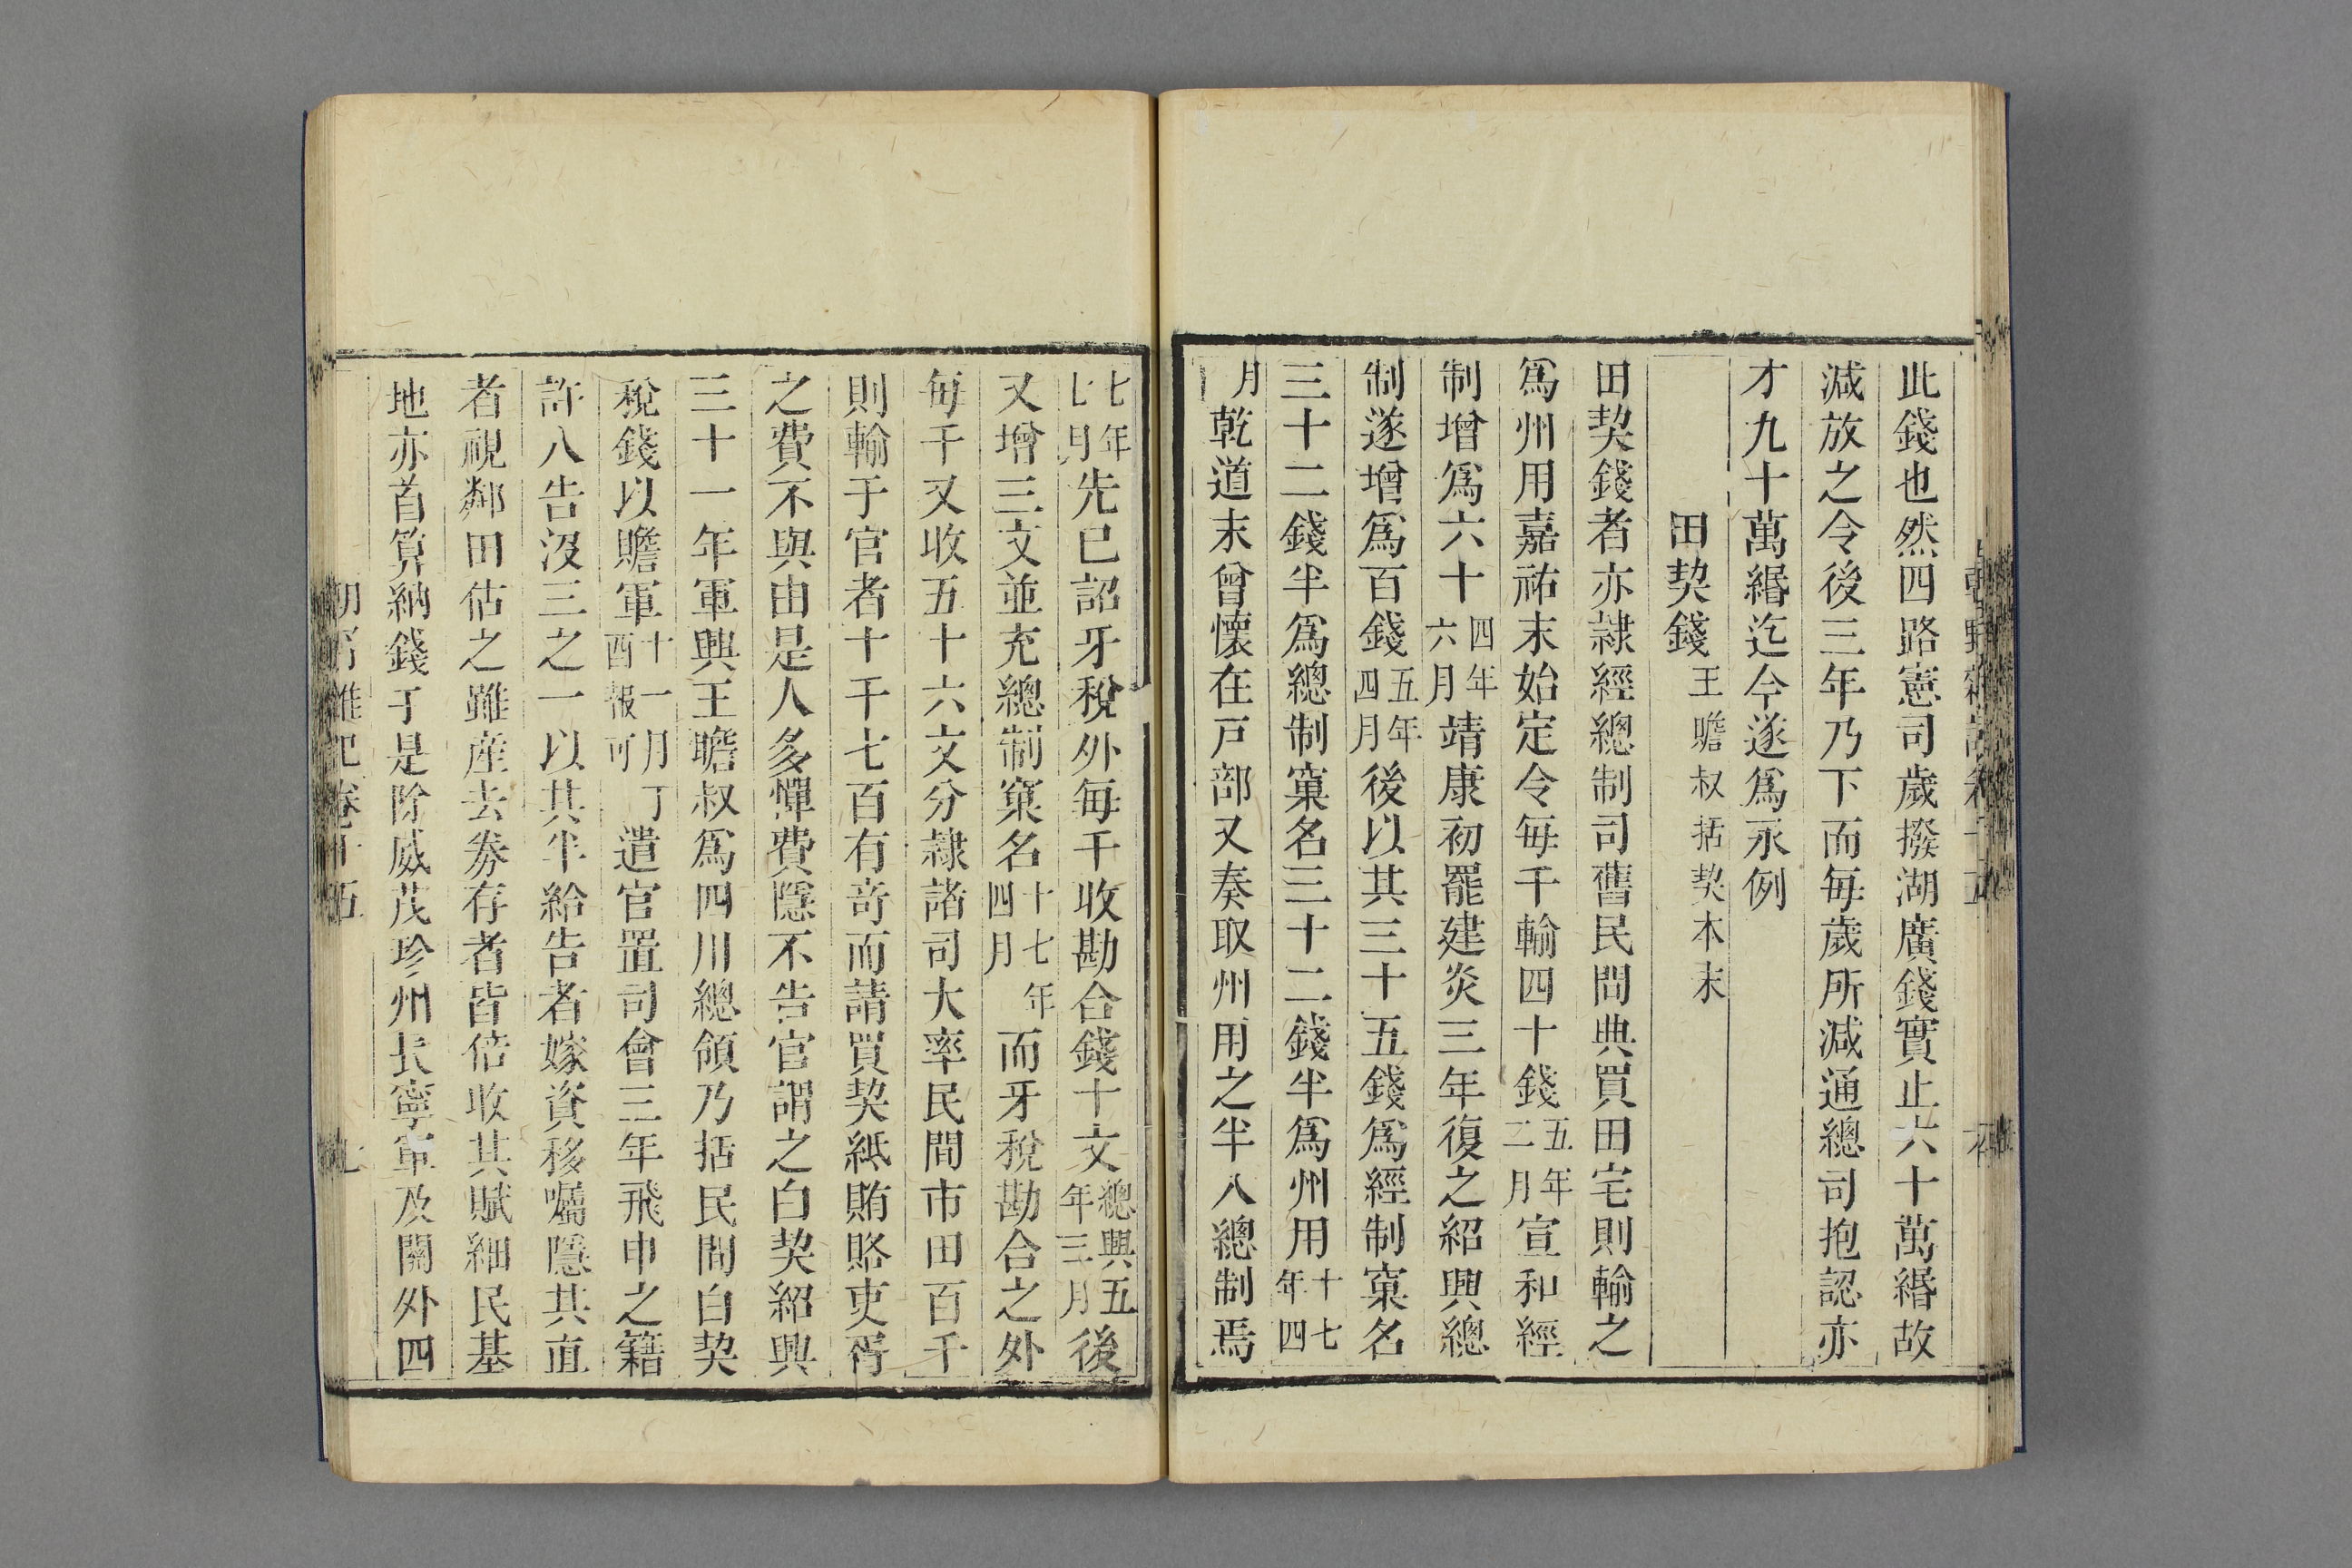 此錢也然四路憲司歲撥湖廣錢實止六十萬緡故
減放之令後三年乃下而毎歲所減通總司抱認亦
才九十萬緡迄今遂爲永例
田契錢王瞻叔括契本末
田契錢者亦隷經總制司舊民間典買田宅則輸之
爲州用嘉祐末始定令毎千輸四十錢五年二月宣和經
制增爲六十四年六月靖康初罷建炎三年復之紹興總
制遂增爲百錢五年四月後以其三十五錢爲經制窠名
三十二錢半爲總制窠名三十二錢半爲州用十七年四
月乾道末曾懷在戸部又奏取州用之半入總制焉
七年七月先已詔牙稅外毎千收勘合錢十文總興五年三月後
又增三文並充總制窠名十七年四月而牙稅勘合之外
毎千又收五十六文分隷諸司大率民間市田百千
則輸于官者十千七百有奇而請買契紙賄賂吏胥
之費不與由是人多憚費隱不告官謂之白契紹興
三十一年軍興王瞻叔爲四川總領乃括民間白契
稅錢以贍軍十一月丁酉報可遣官置司會三年飛申之籍
許人告沒三之一以其半給告者嫁資移囑隱其直
者視鄰田估之雖産去劵存者皆倍收其賦細民基
地亦首算納錢于是除威茂珍州長寧軍及關外四